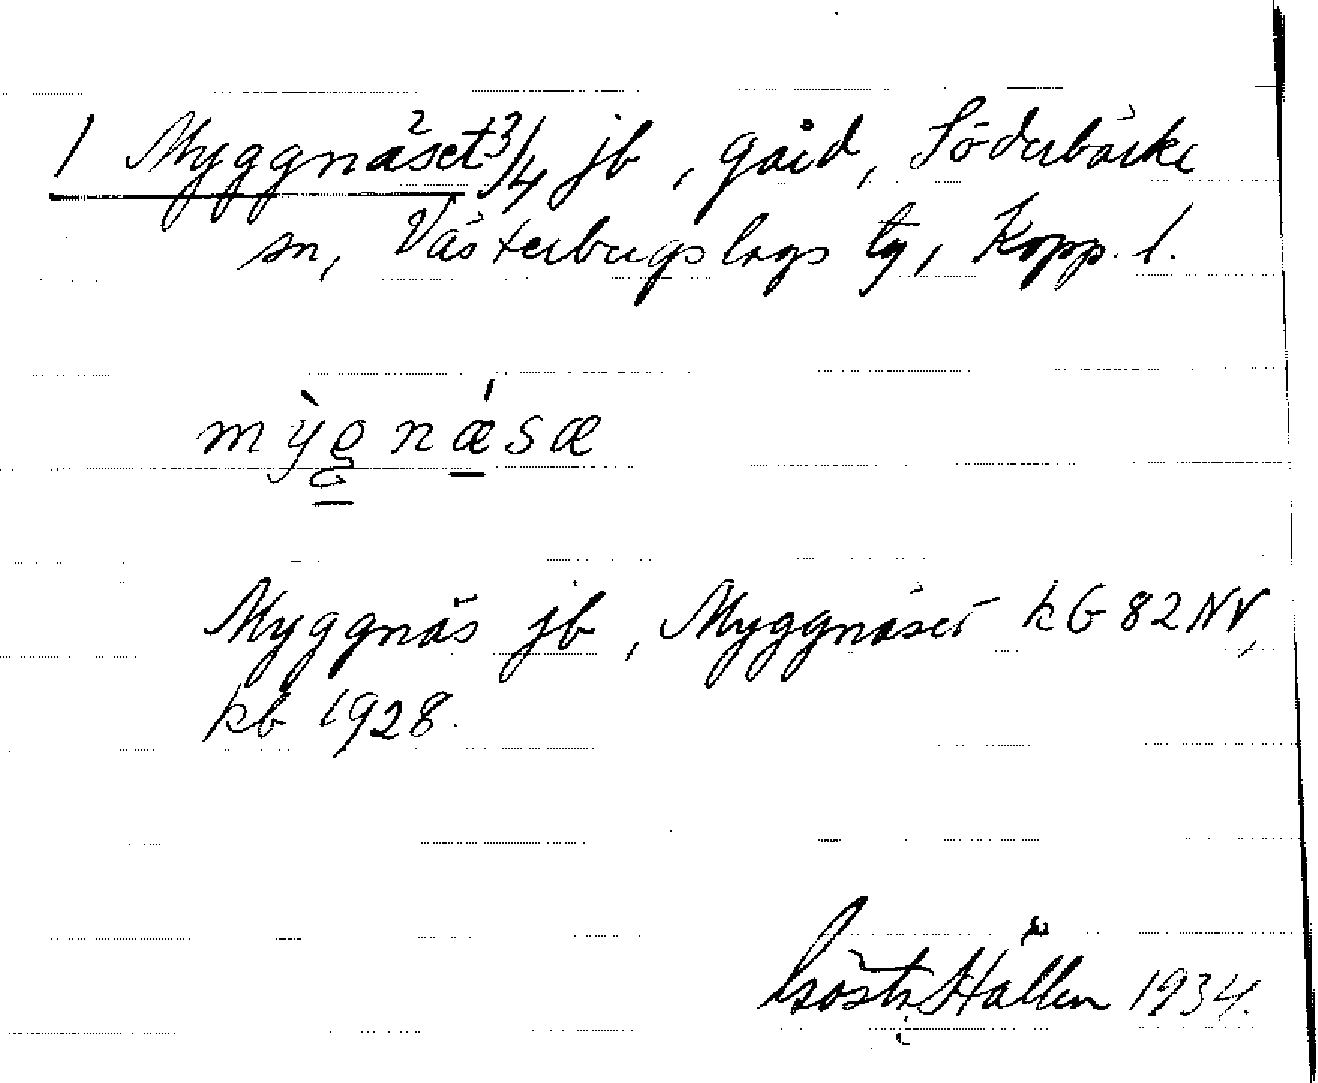 1 Myggnäset 3/4 jb, gård, Söderbärke
sn, Västerbergslags tg, Kopp. l.
mỳg̱nǽsæ
Myggnäs jb, Myggnäset kG 82 NV,
kb 1928.
Gösta Hallén 1934.